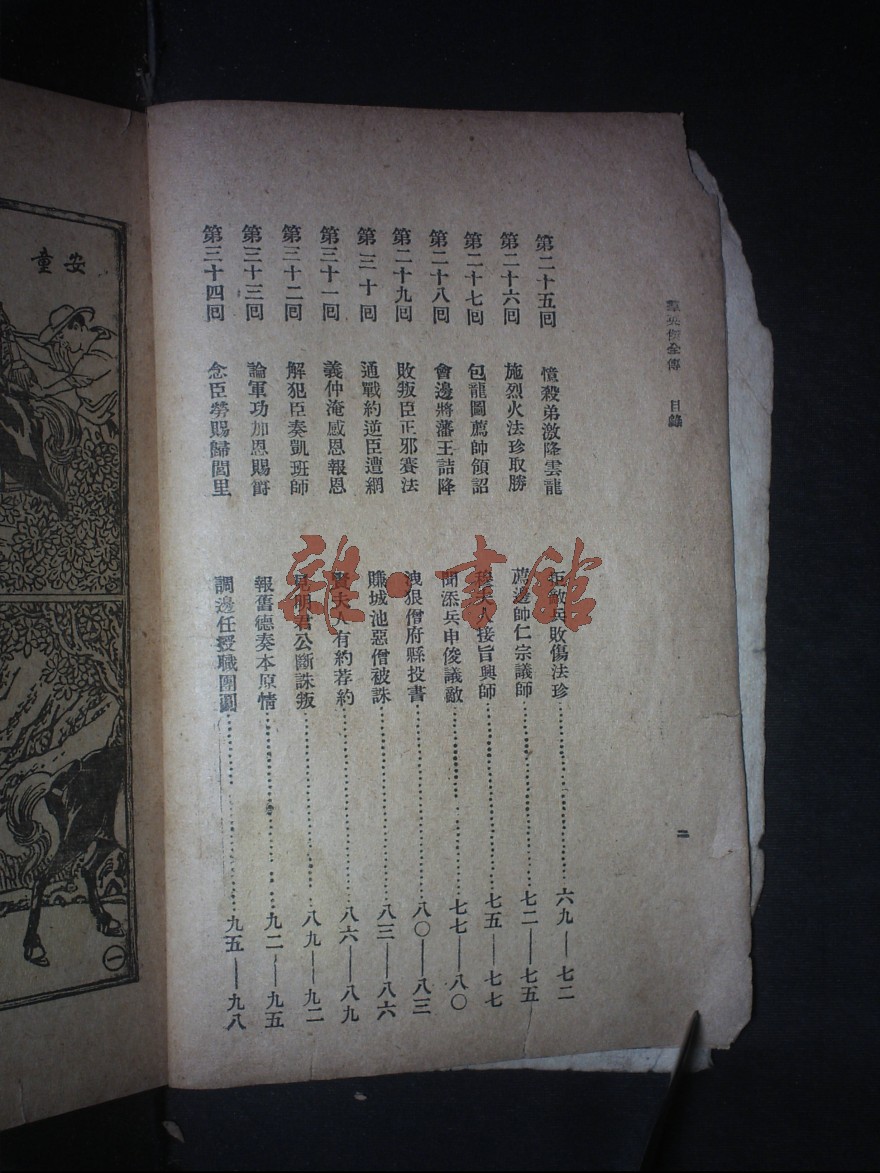 羣英傑全傳 目錄
二
第二十五回 憤殺弟激降雲龍 拒敵兵敗傷法珍 六九—七二
第二十六回 施烈火法珍取勝 薦邊帥仁宗議師 七二—七五
第二十七回 包龍圖薦帥領詔 夫人接旨興師 七五—七七
第二十八回 會邊將藩王詰降 聞添兵申俊議敵 七七—八〇
第二十九回 敗叛臣正邪賽法 洩狠僧府縣投書 八〇—八三
第三十回 通戰約逆臣遭網 賺城池惡僧被誅 八三—八六
第三十一回 義仲淹感恩報恩 賢夫人有約荐約 八六—八九
第三十二回 解犯臣奏凱班師 見明君公斷誅叛 八九—九二
第三十三回 論軍功加恩賜爵 報舊德奏本原情 九二—九五
第三十四回 念臣勞賜歸閭里 調邊任授職團圓 九五—九八
安童
一
雜·書館